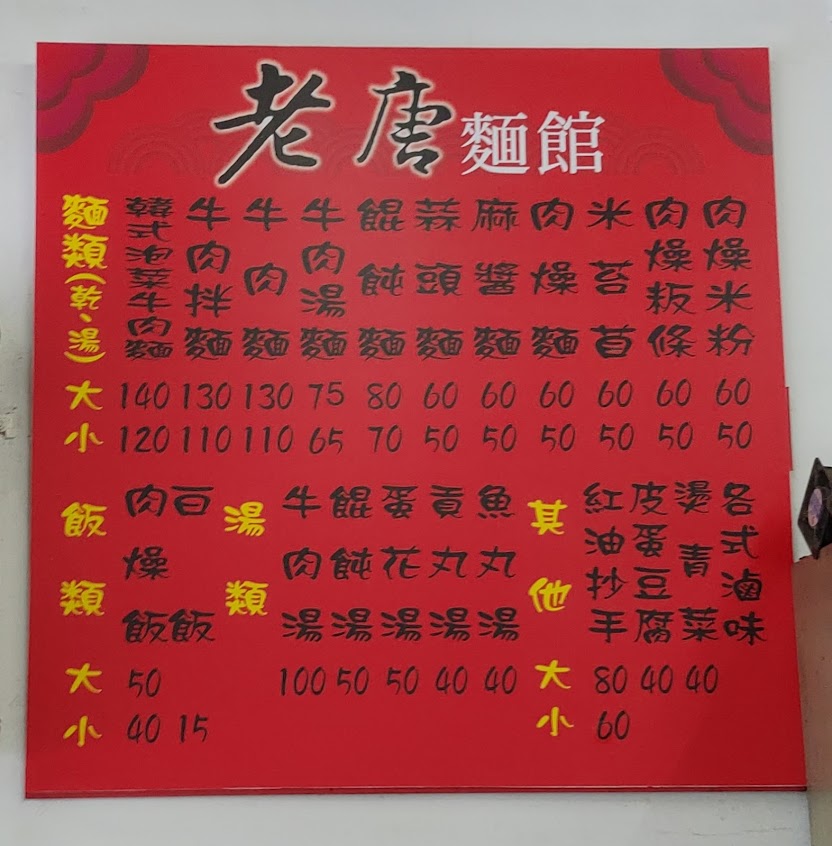 老唐麵館
麵類(乾、湯)
韓式泡菜牛肉麵
牛肉拌麵
牛肉麵
牛肉湯麵
餛飩麵
蒜頭麵
麻醬麵
肉燥麵
米苔苜
肉燥粄條
肉燥米粉
大 140 130 130 75 80 60 60 60 60 60 60
小 120 110 110 65 70 50 50 50 50 50 50
飯類
肉燥飯
白飯
大 50
小 40 15
湯類
牛肉湯
餛飩湯
蛋花湯
貢丸湯
魚丸湯
100 50 50 40 40
其他
紅油抄手
皮蛋豆腐
燙青菜
各式滷味
大 80 40 40
小 60